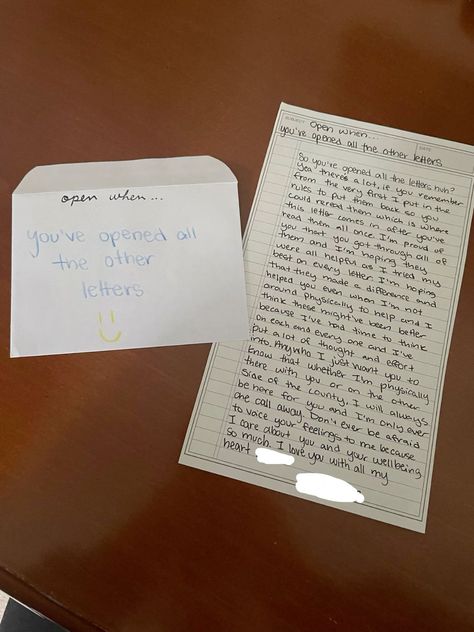 open when...
you've opened all
the other
letters
SUBJECT
DATE
Open when...
you've opened all the other letters
So you've opened all the letters huh?
Yea' there's a lot, if you remember
from the very first I put in the
rules to put them back so you
could reread them which is where
this letter comes in after you've
read them all once. I'm proud of
you that you got through all of
them and I'm hoping they
were all helpful as I tried my
best on every letter. I'm hoping
that they made a difference and
helped you even when I'm not
around physically to help and I
think these might've been better
because I've had time to think
on each and every one and I've
put a lot of thought and effort
into. Anywho I just want you to
know that whether I'm physically
there with you or on the other
side of the county, I will always
be here for you and I'm only ever
one call away. Don't ever be afraid
to voice your feelings to me because
I care about you and your wellbeing
so much. I love you with all my
heart